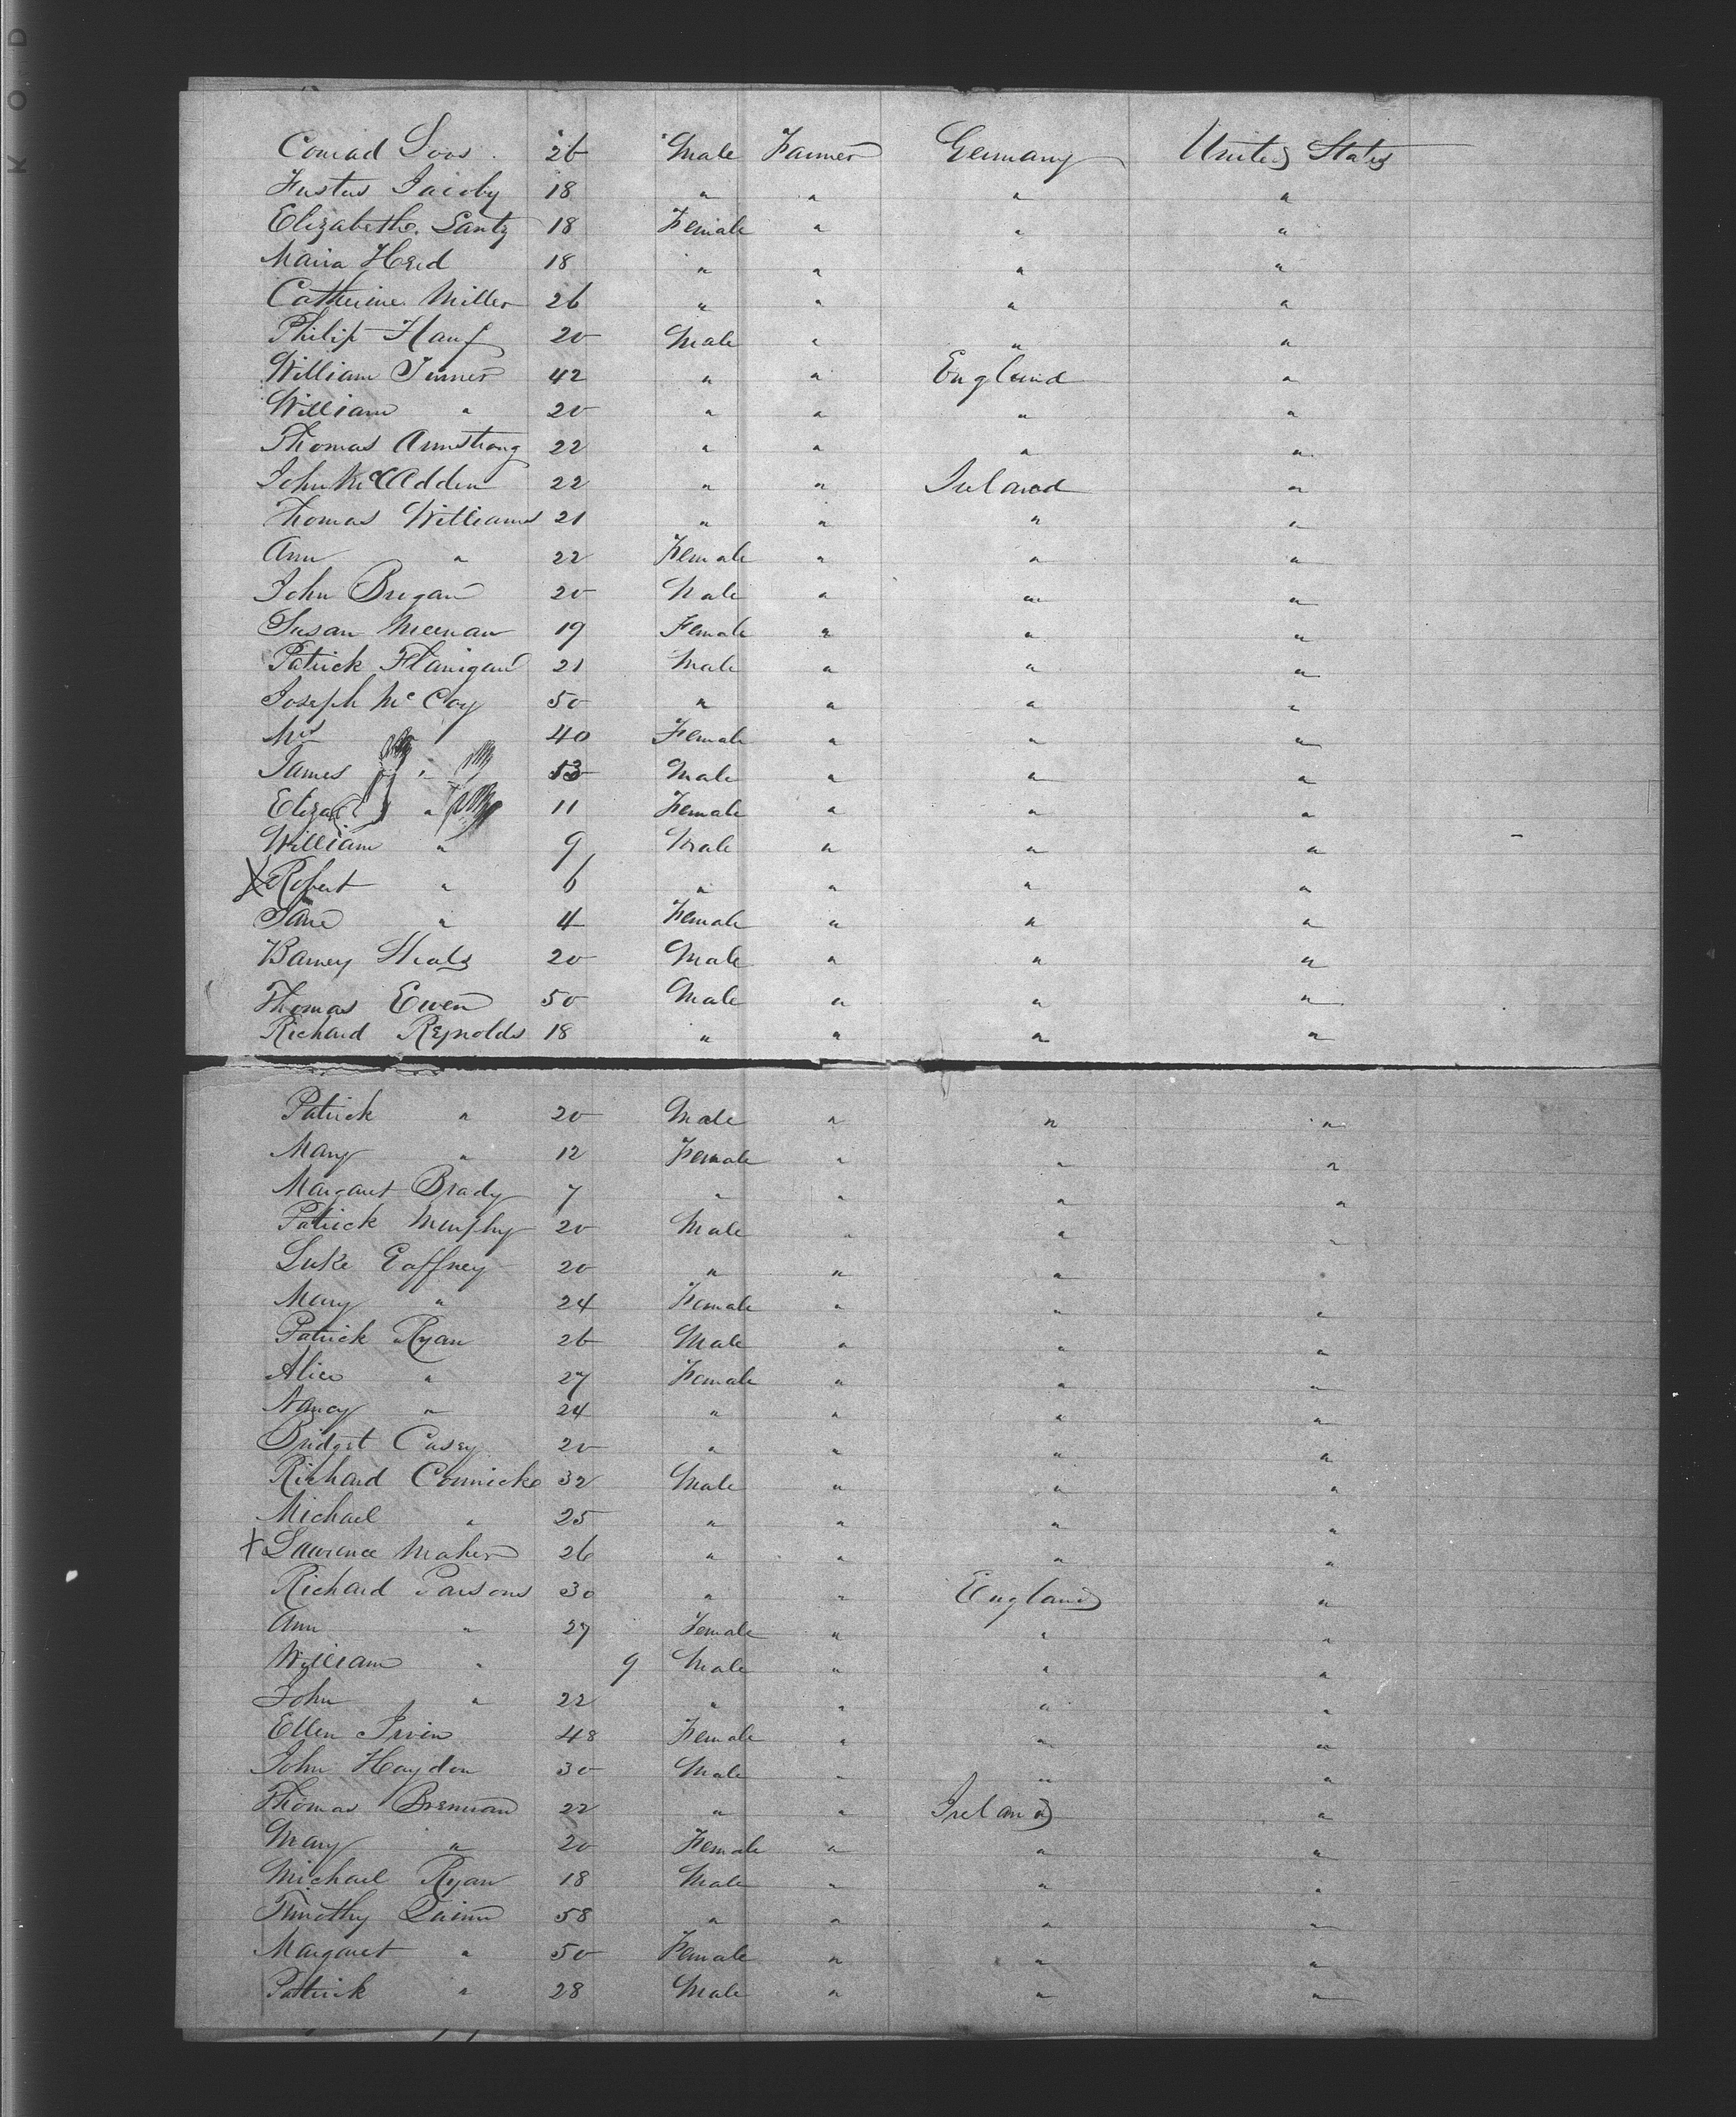 Conrad Loos 26 Male Farmer Germany United States
Justus Jacoby 18 " " " "
Elizabethe Lantz 18 Female " " "
Maria Heid 18 " " " "
Catherine Miller 26 " " " "
Philip Hauf 20 Male " " "
William Turner 42 " " England "
William " 20 " " " "
Thomas Armstrong 22 " " " "
John McAdden 22 " " Ireland "
Thomas Williams 21 " " " "
Ann " 22 Female " " "
John Bregan 20 Male " " "
Susan Meenan 19 Female " " "
Patrick Flanigan 21 Male " " "
Joseph Mc Coy 50 " " " "
Mrs 40 Female " " "
James " 13 Male " " "
Eliza " 11 Female " " "
William " 9 Male " " "
X Robert " 6 " " " "
Jane " 4 Female " " "
Barney 20 Male " " "
Thomas Ewen 50 Male " " "
Richard Reynolds 18 " " " "
Patrick " 20 Male " " "
Mary " 12 Female " " "
Margaret Brady 7 " " " "
Patrick Murphy 20 Male " " "
Luke Gaffney 20 " " " "
Mary " 24 Female " " "
Patrick Ryan 26 Male " " "
Alice " 27 Female " " "
Nancy " 24 " " " "
Bridget Casey 20 " " " "
Richard Connicke 32 Male " " "
Michael " 25 " " " "
X Lawrence Maher 26 " " " "
Richard Parsons 30 " " England "
Ann " 27 Female " " "
William " 9 Male " " "
John " 22 " " " "
Ellen Irvin 48 Female " " "
John Haydon 30 Male " " "
Thomas Brennan 22 " " Ireland "
Mary " 20 Female " " "
Michael Ryan 18 Male " " "
Timothy Quinn 58 " " " "
Margaret " 50 Female " " "
Patrick " 28 Male " " "